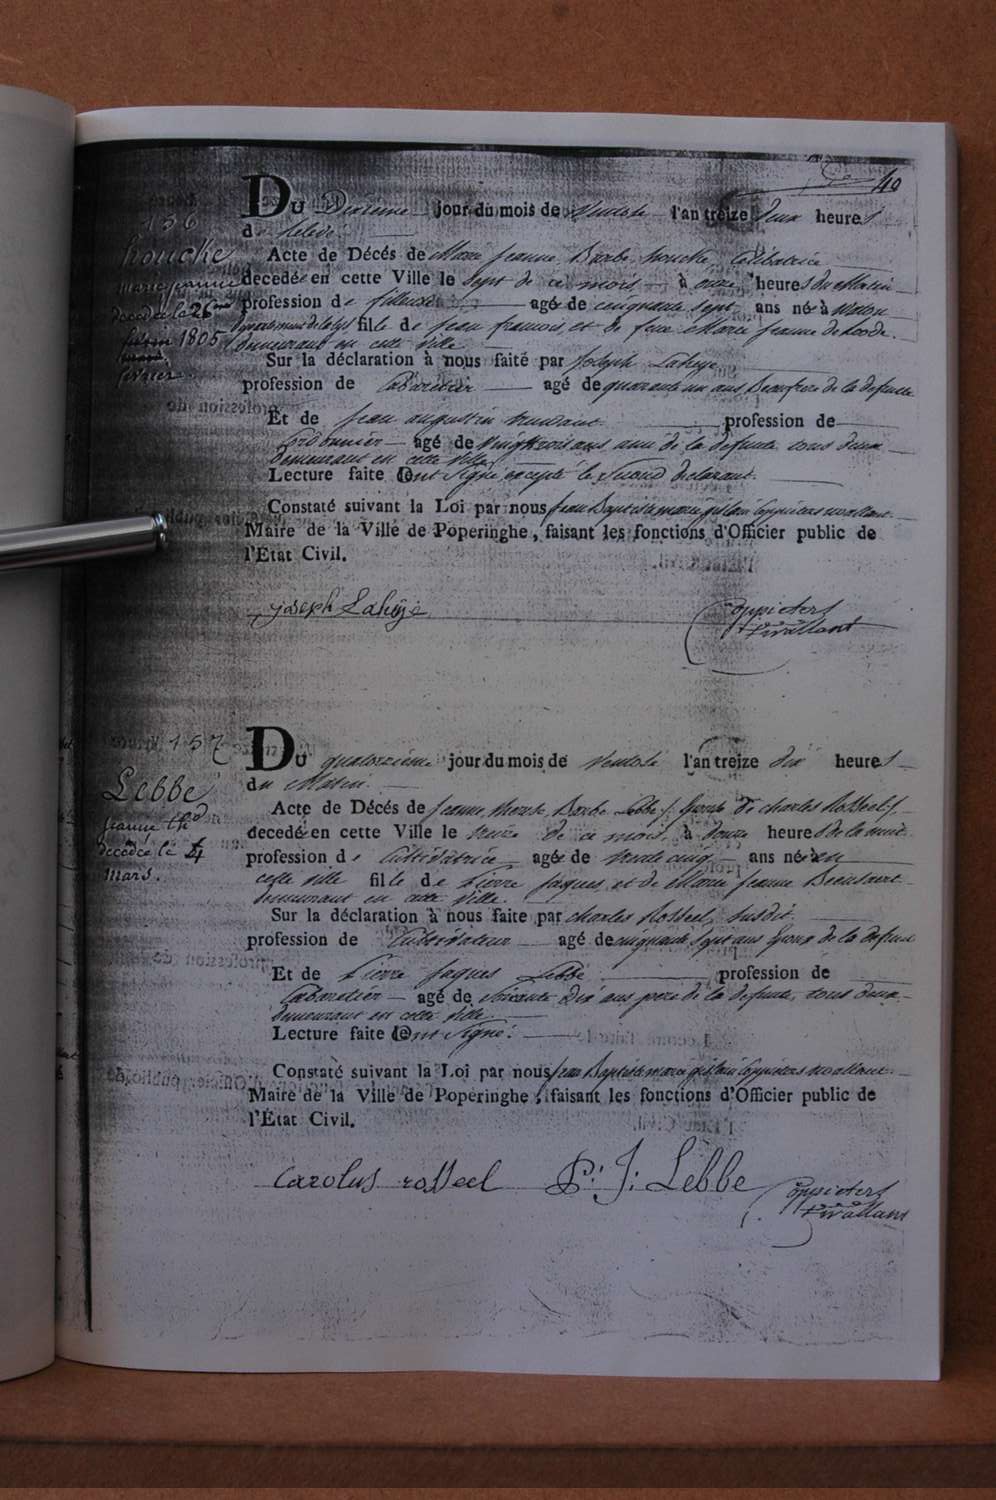 40
156
houcke
marie jeanne
decedée le 26
1805
fevrier
Du Dixieme jour du mois de Ventose l'an treize Deux heures
de relevé.
Acte de Décés de Marie Jeanne Barbe houcke Celibatrice
decedée en cette Ville le Sept de ce mois à onze heures du Matin
profession de fileuse agée de cinquante Sept ans née à Watou
departement de la lys fille de Jean francois et de feue Marie Jeanne de
demeurant en cette Ville.
Sur la déclaration à nous faite par Joseph Laheye
profession de Cabaretier agé de quarante un ans Beaufrere de la defunte
Et de Jean augustin profession de
Cordonnier agé de vingt trois ans ami de la defunte tous deux
demeurant en cette Ville
Lecture faite Ont Signé, excepté le Second declarant.
Constaté suivant la Loi par nous Jean Baptiste marie Coppieters
Maire de la Ville de Poperinghe, faisant les fonctions d'Officier public de
l'État Civil.
joseph Laheye
Coppieters
157
Lebbe
jeanne
decedée le 4
mars.
Du quatorzième jour du mois de Ventose l'an treize dix heures
du Matin.
Acte de Décés de Jeanne therese Barbe Lebbe Epouse de charles Rosseel
decedé en cette Ville le treize de ce mois à douze heures de la nuit
profession de Cultivatrice agée de trente cinq ans née en
cette ville fille de Pierre Jaques et de Marie Jeanne
demeurant en cette Ville.
Sur la déclaration à nous faite par charles Rosseel, Susdit
profession de Cultivateur agé de cinquante Sept ans Epoux de la defunte
Et de Pierre Jaques Lebbe profession de
Cabaretier agé de Soixante Dix ans pere de la defunte, tous deux
demeurant en cette Ville.
Lecture faite Ont Signé.
Constaté suivant la Loi par nous Jean Baptiste marie Coppieters
Maire de la Ville de Poperinghe, faisant les fonctions d'Officier public de
l'État Civil.
Carolus rosseel P: J: Lebbe Coppieters